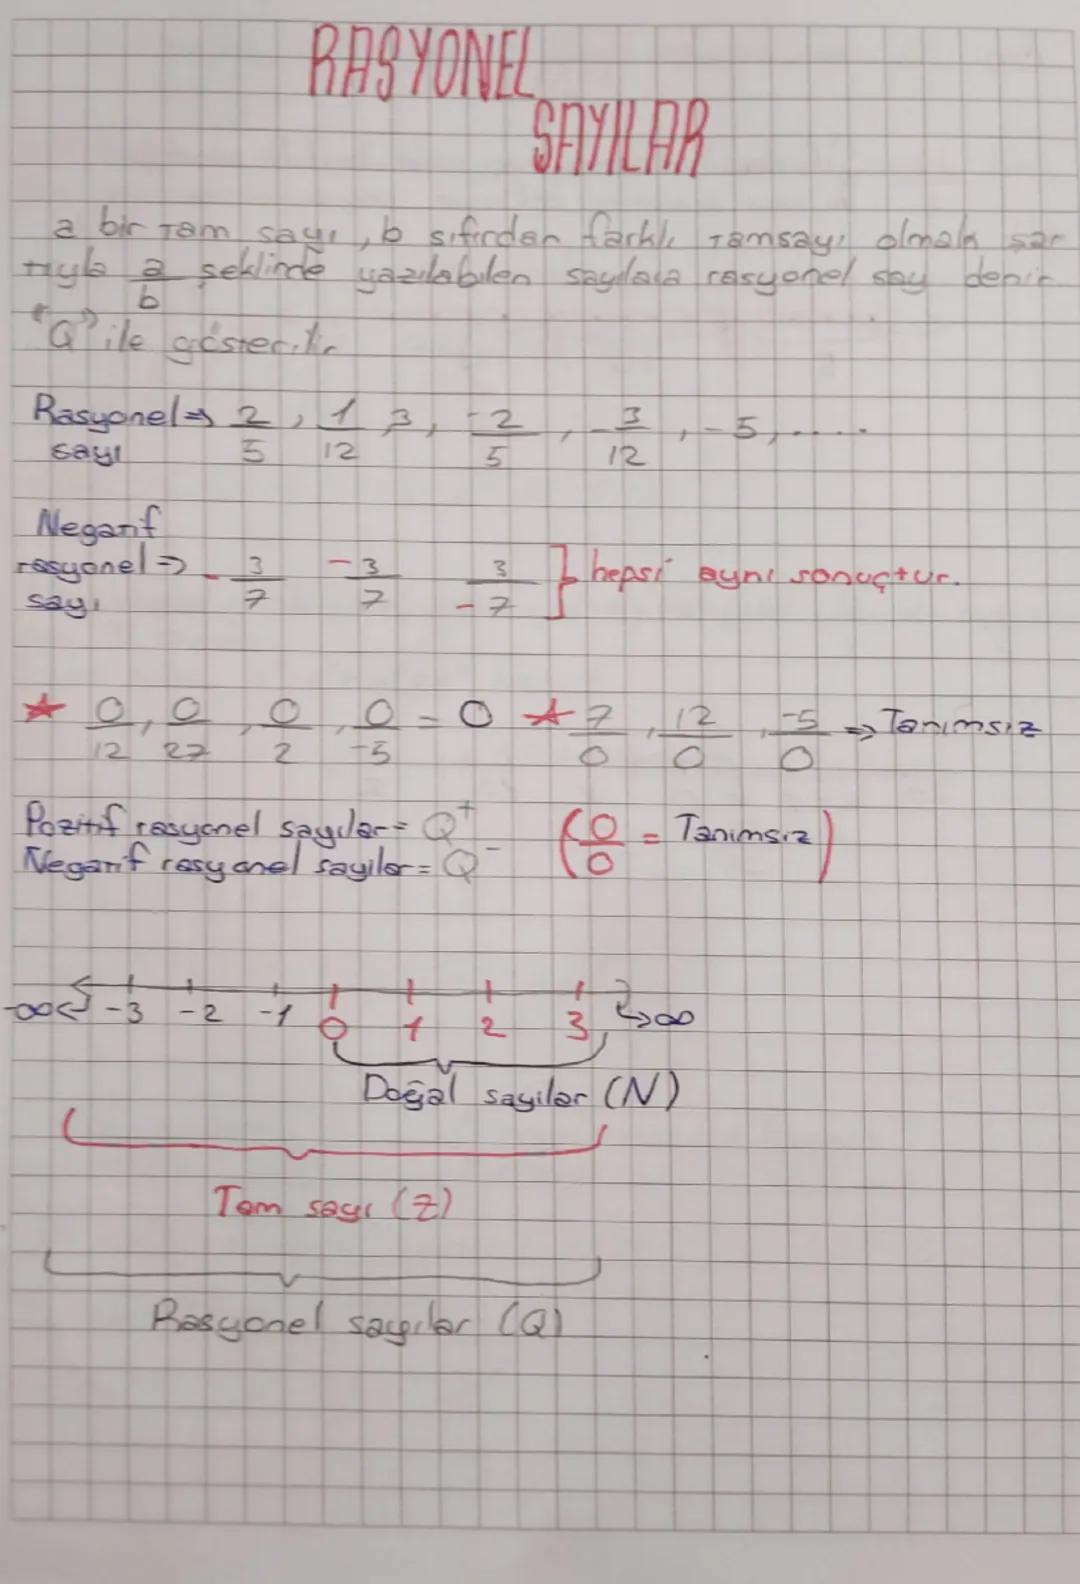 RASYONEL
SAYILAR
a bir Tam sayı, b sıfırdan farklı Tamsayı olmak şar
tıyla a/b şeklinde yazılabilen sayılara rasyonel say denir
"Q" ile gösterilir
Rasyonel ⇒ 2/5, 1/12, 3, -2/5, -3/12, -5, .....
sayı
Negatif
rasyonel ⇒ -3/7 -3/7 3/-7 } hepsi aynı sonuçtur.
sayı
★ 0/12, 0/27, 0/2, 0/-5 = 0 ★ 7/0, 12/0, -5/0 ⇒ Tanımsız
Pozitif rasyonel sayılar = Q⁺ (0/0 = Tanımsız)
Negatif rasyonel sayılar = Q⁻
-∞ -3 -2 -1 0 1 2 3 ∞
Doğal sayılar (N)
Tam sayı (Z)
Rasyonel sayılar (Q)